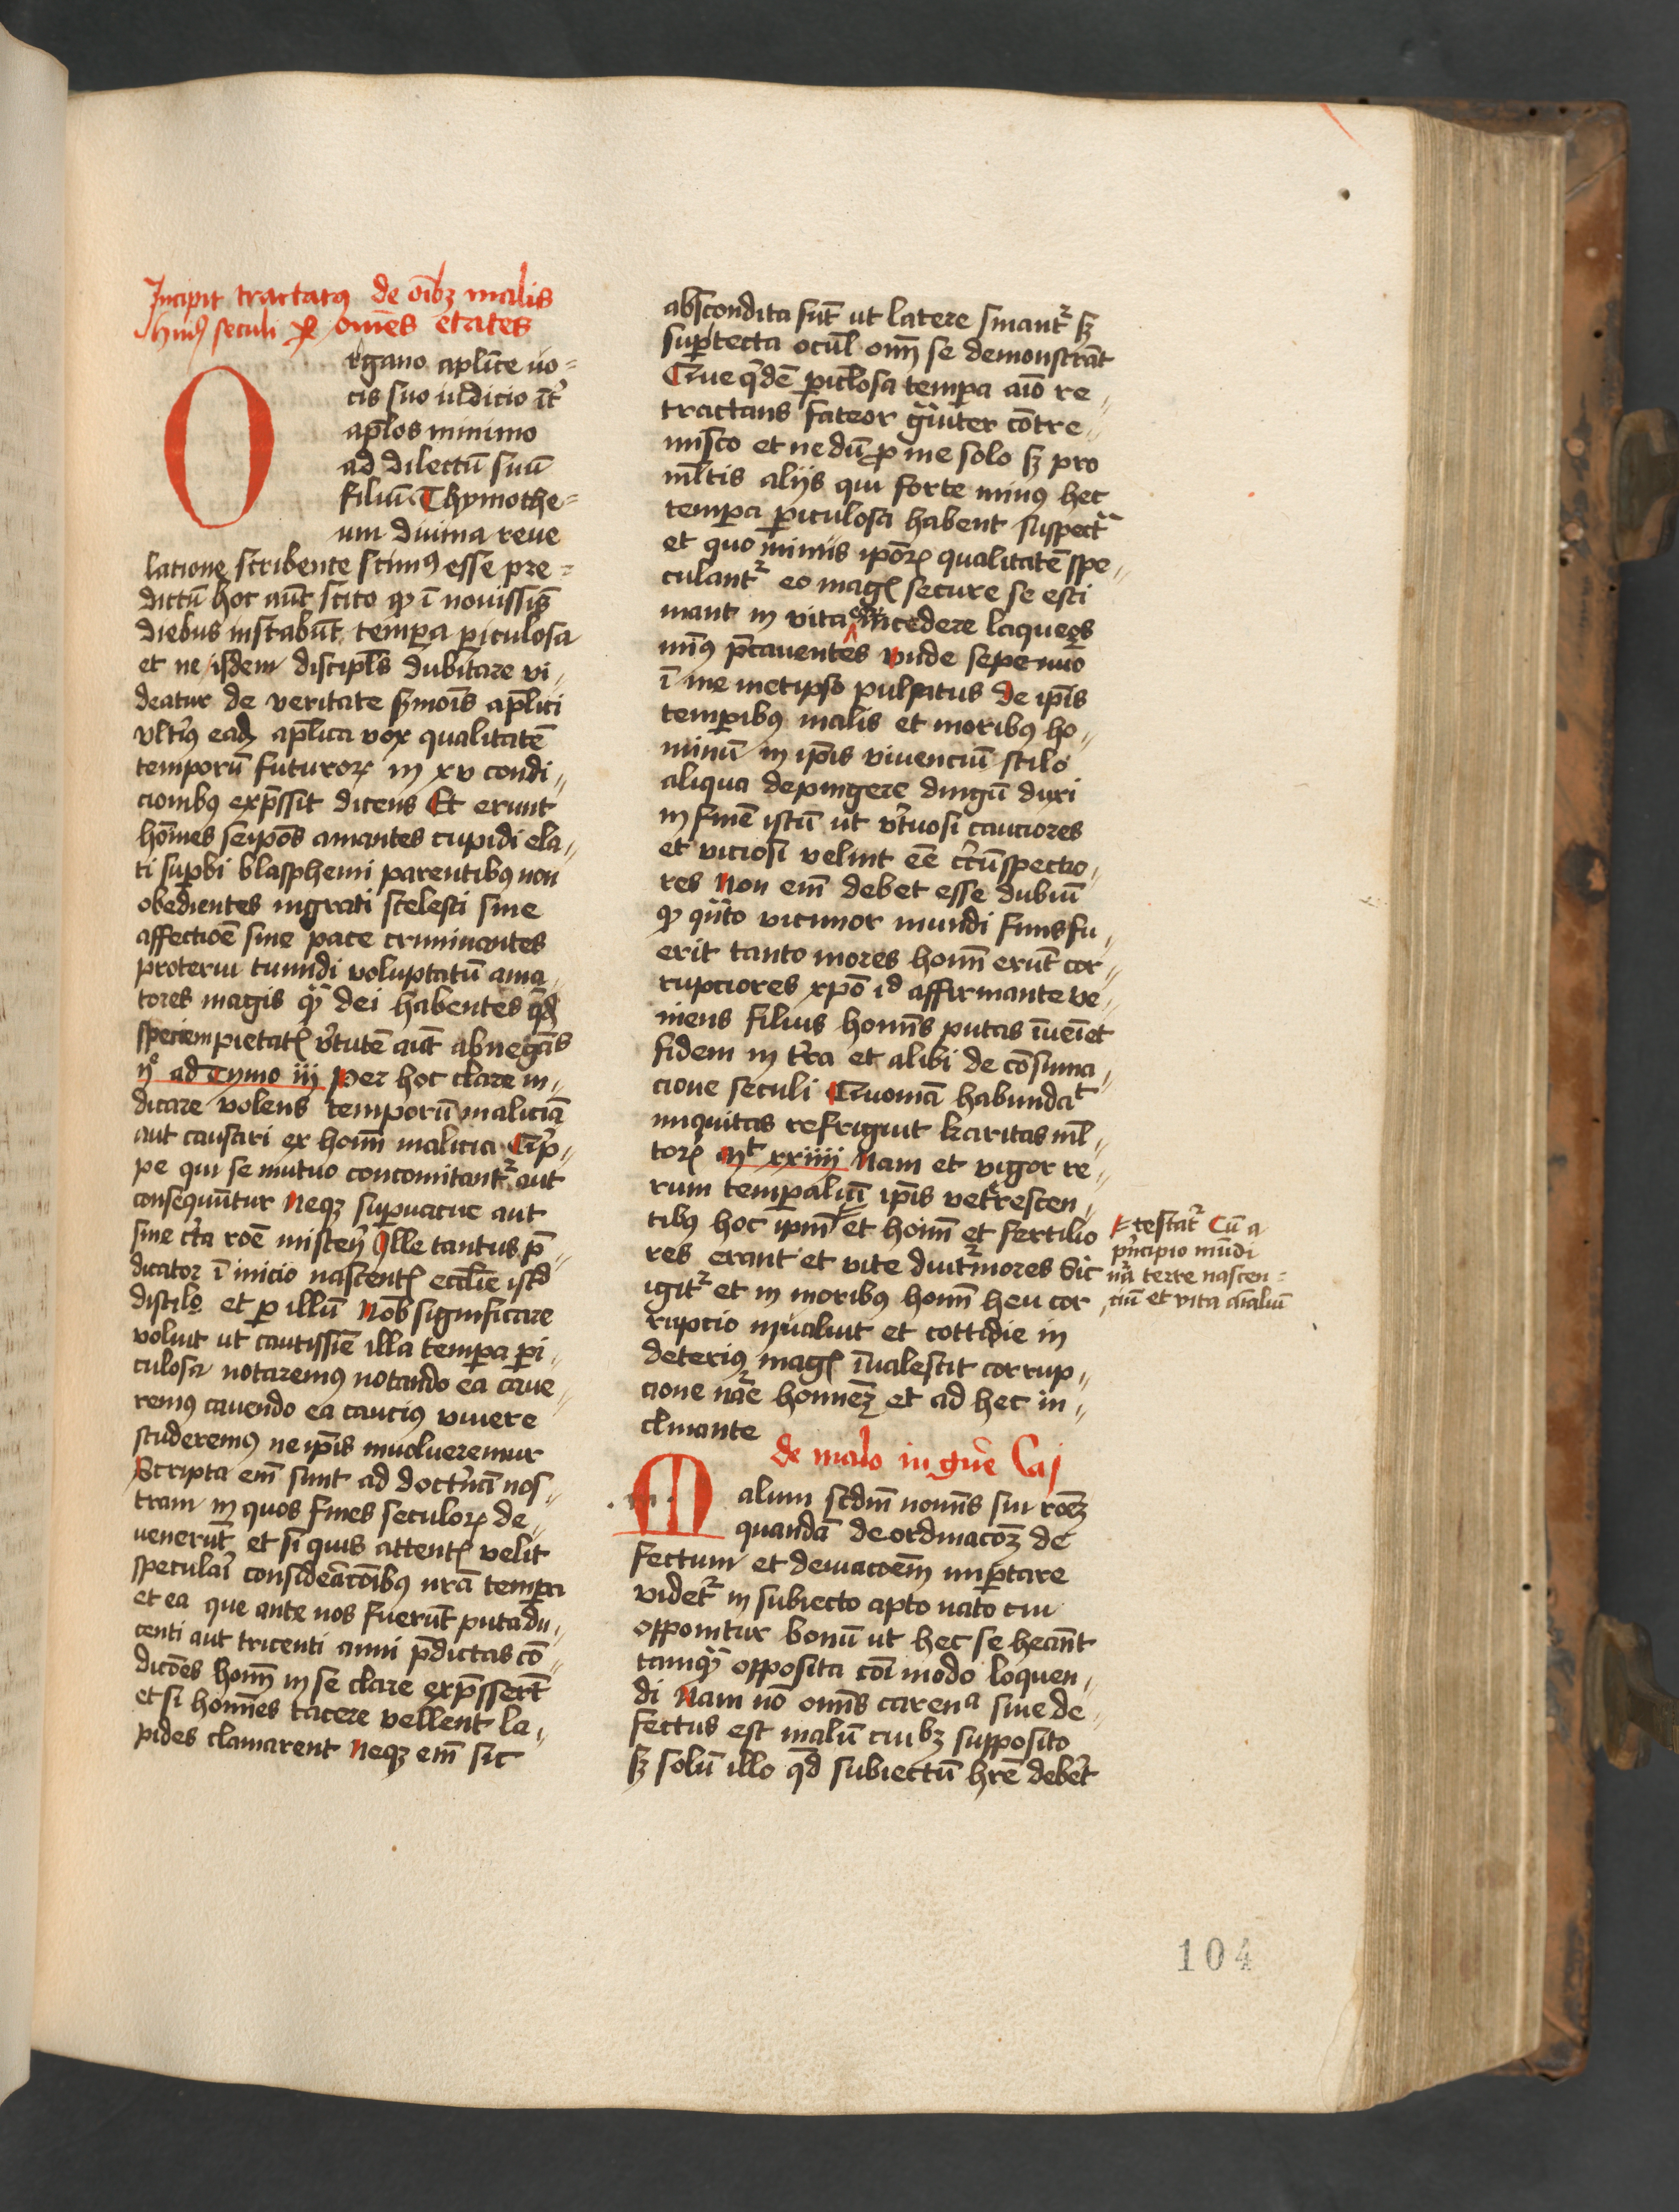 Incipit tractatꝰ de oībꝫ malis
huiꝰ seculi ꝑ om̄es etates
Organo aplīce uo⸗
cis suo iudicio īt̄
apl̄os minimo
ad dilectū suū
filiū Thymothe⸗
um diuina reue
latione scribente scimꝰ esse pre⸗
dictū hoc aūt scito ꝙ ī nouissīs
diebus instabūt tempora ꝑiculosa
et ne isdem discipl̄s dubitare vi⸗
deatur de veritate ẜmoīs apl̄ici
vltīꝰ eadē apl̄ica vox qualitatē
temporū futuroꝝ in xv condi⸗
cionibꝰ exp̄ssit dicens Et erunt
hoīnes seip̄os amantes cupidi ela⸗
ti suꝑbi blasphemi parentibꝰ non
obedientes ingrati scelesti sine
affectiōe sine pace criminantes
proterui tumidi voluptatū ama⸗
tores magis qȝ dei habentes qd̄
speciem pietatꝭ v̄tutē aūt abnegātꝭ
ijᵒ ad Tymo iij Per hoc clare in⸗
dicare volens temporū maliciā
aut causari ex hoīm malicia Qip̄⸗
pe qui se mutuo concomitantᷣ aut
consequūntur Neqꝫ suꝑuacue aut
sine c̄ta roē misterij Ille tantus p̄⸗
dicator ī inicio nascentꝭ eccl̄ie istᵈ
distilo et ꝑ illū Nob̄ significare
voluit ut cautissīe illa tempora ꝑi⸗
culosa notaremꝰ notando ea caue⸗
remꝰ cauendo ea caucius viuere
studeremꝰ ne ip̄is inuolueremur
Scripta em̄ sunt ad doct̄nā nos⸗
tram in quos fines seculoꝝ de⸗
uenerūt et si quis attentꝭ velit
speculaī consideācōibꝰ nr̄a tempora
et ea que ante nos fuerūt puta du⸗
centi aut tricenti anni p̄dictas cō⸗
dicōes hoīm in se clare exp̄sserūt
et si hoīnes tacere vellent la⸗
pides clamarent Neqꝫ em̄ sic
abscondita sūt ut latere sinantᷣ sꝫ
suꝑtecta ocul̄ om̄ se demonstrāt
Que qͥdē ꝑicl̄osa tempora aīo re⸗
tractans fateor gͣuiter cōtre⸗
misco et nedū ꝓ me solo sꝫ pro
ml̄tis alijs qui forte minꝰ hec
tempora ꝑiculosa habent suspectᷓ
et quo minus ip̄oꝝ qualitatē spe⸗
culantᷣ eo magꝭ secure se esti
mant in vita incedere laqueos
minꝰ p̄cauentes vnde sepenūo
ī me metipso pulsatus de ip̄is
temporibꝰ malis et moribꝰ ho⸗
minū in ip̄is viuenciū stilo
aliqua depingere dingū duxi
in finē istū ut v̄tuosi cauciores
et viciosi velint eē c̄cūspectio⸗
res Non em̄ debet esse dubiū
ꝙ qͣnto vicinior mundi finis fu⸗
erit tanto mores hoīm erūt cor⸗
rupciores xp̄o id affirmante ve⸗
niens filius hoīnis putas īueīet
fidem in t̄ra et alibi de cōsuma⸗
cione seculi Quoniā habundaᵗ
iniquitas refrigiut karitas ml̄⸗
toꝝ Mᵗ xxiiij Nam et vigor re⸗
rum temporaliū ip̄is vetrescen⸗
tibꝰ hoc ip̄m et hoīm et fertilio
res erant et vite diutᷣniores Sic
igitᷣ et in moribꝰ hoīm heu cor
rupcio inualuit et cottidie in
deteriꝰ magꝭ īualescit corrup⸗
cione nāe homineꝫ et ad hec in⸗
clinante
testatᷣ Cū a
pͥncipio mūdi
nͣ terre nascen⸗
ciū et vita aīaliū
de malo in gn̄e Ca j
Malum scdm̄ nomīs sui roēꝫ
quandā deordinacōꝫ de
fectum et deuiacōem importare
videtᷣ in subiecto apto nato cui
opponitur bonū ut hec se hēānt
tamqȝ opposita cōi modo loquen⸗
di Nam nō omīs carenᵃ siue de⸗
fectus est malū cuibꝫ supposito
sꝫ solū illo qd̄ subiectū hr̄e debet
104